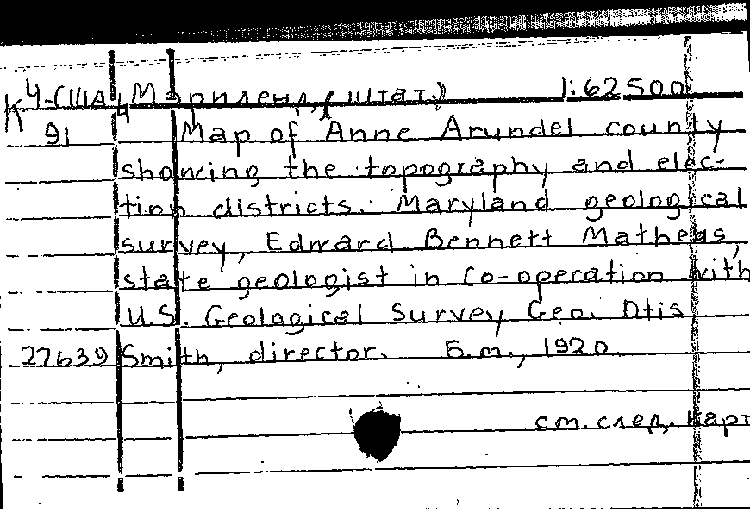 К 4-США Мэриленд, (штат) 1:62500
4
91 Map of Anne Arundel county
showing the topography and elec-
tion districts. Maryland geological
survey, Edward Bennett Mathews,
state geologist in co-operation with
U.S. Geological Survey Geo. Otis
27639 Smith, director. Б.м., 1920.
см. след. карт